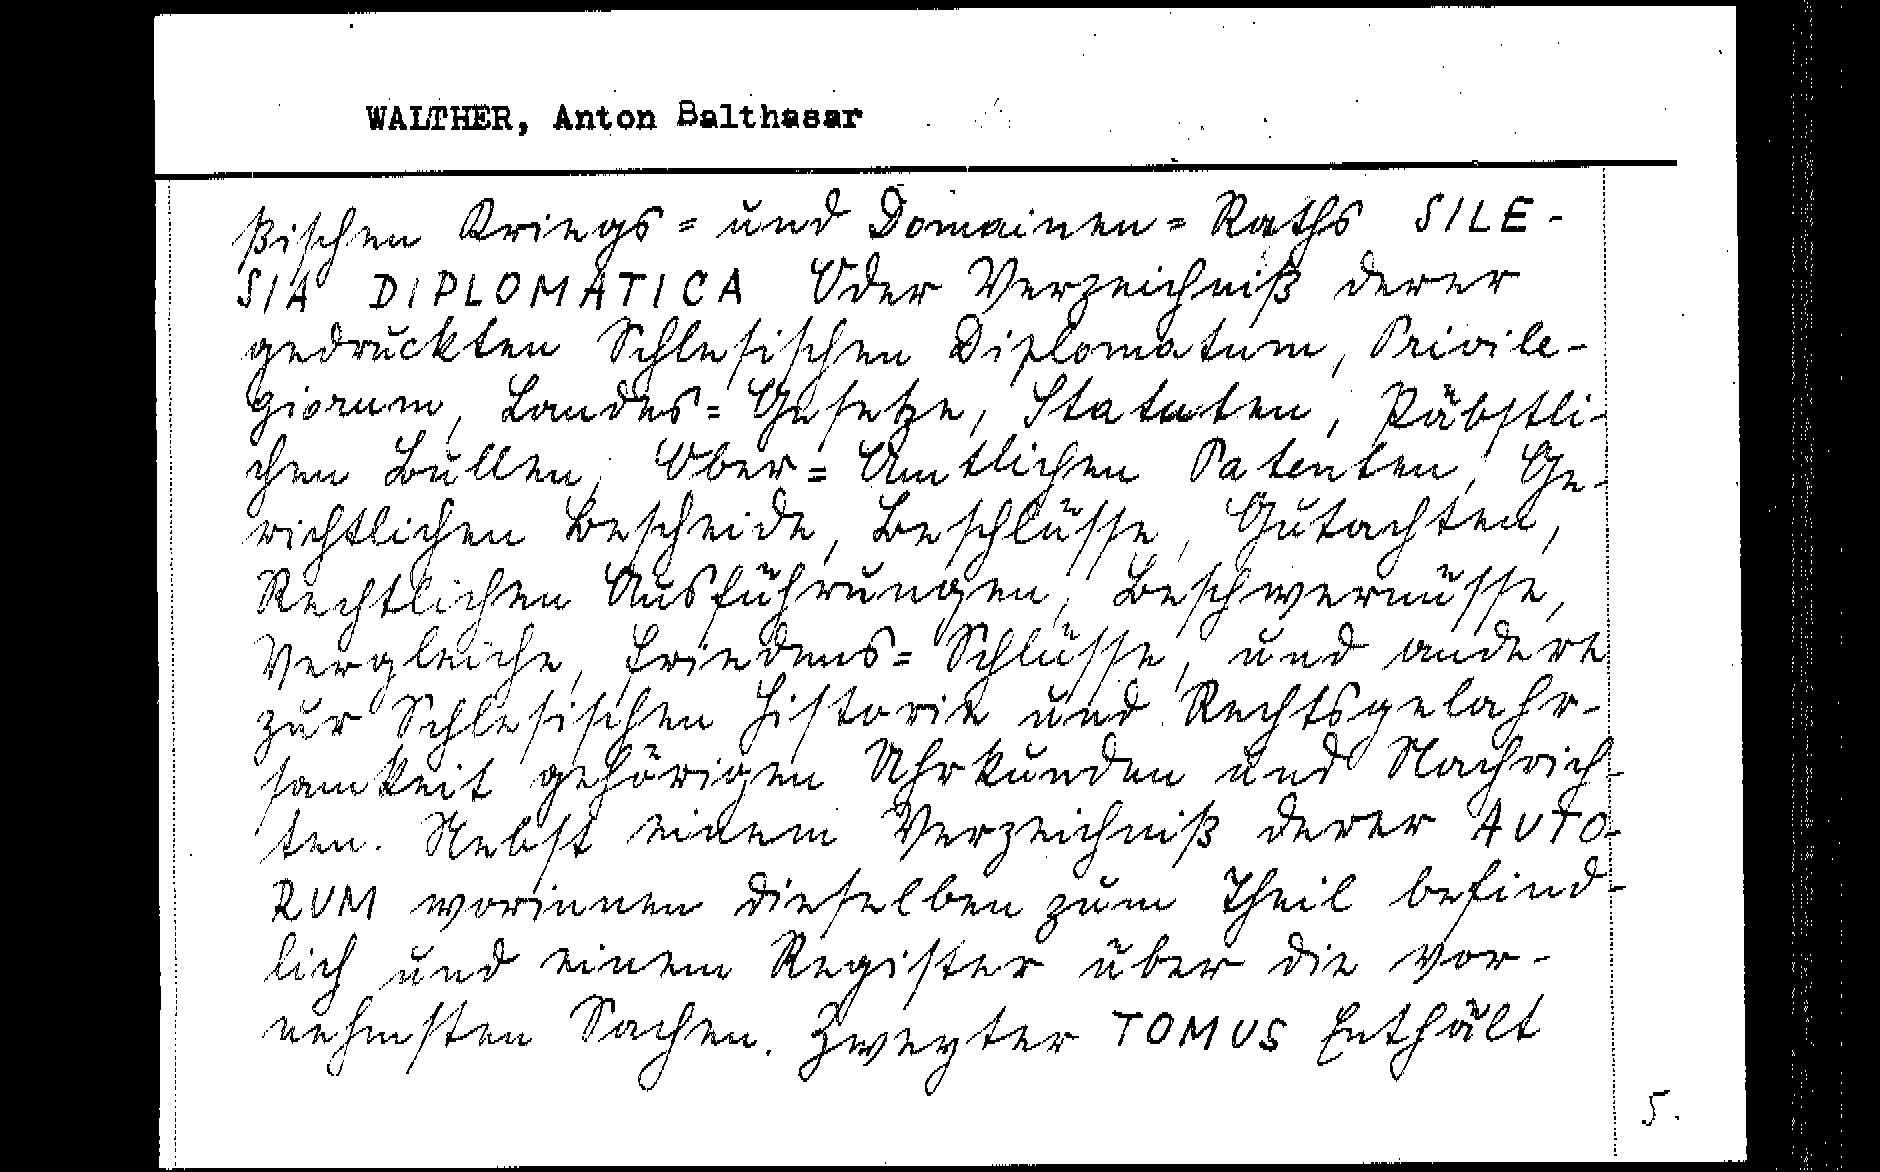 WALTHER, Anton Balthasar
ßischen Kriegs= und Domainen=Raths SILE-
SIA DIPLOMATICA Oder Verzeichniß derer
gedruckten Schlesischen Diplomatum, Privile-
giorum, Landes=Gesetze, Statuten, Päbstli-
chen Bullen, Ober=Amtlichen Patenten, Ge-
richtlichen Bescheide, Beschlüsse, Gutachten,
Rechtlichen Ausführungen, Beschwernüsse,
Vergleiche, Friedens=Schlüsse, und andere
zur Schlesischen Historie und Rechtsgelahr-
samkeit gehörigen Uhrkunden und Nachrich-
ten. Nebst einem Verzeichniß derer AUTO-
RUM worinnen dieselben zum Theil befind-
lich und einem Register über die vor-
nehmsten Sachen. Zweyter TOMUS Enthält
5.